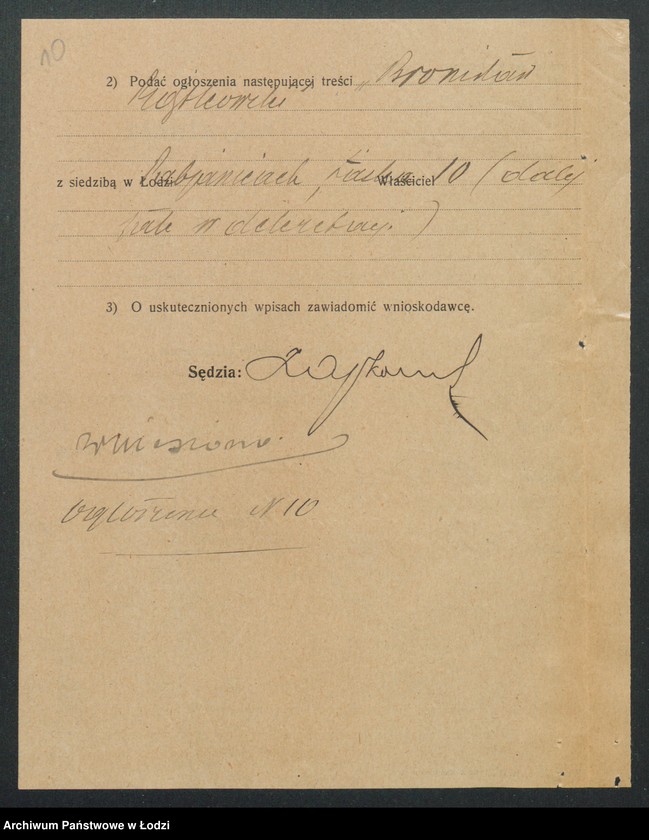 10
2) Podać ogłoszenia następującej treści „Bronisław
z siedzibą w Łodzi Pabjanicach, Łaska Właściciel 10 (dalej
jak w dekrecie)
3) O uskutecznionych wpisach zawiadomić wnioskodawcę.
Sędzia:
Wniesiono.
Ogłoszenie N 10
Archiwum Państwowe w Łodzi